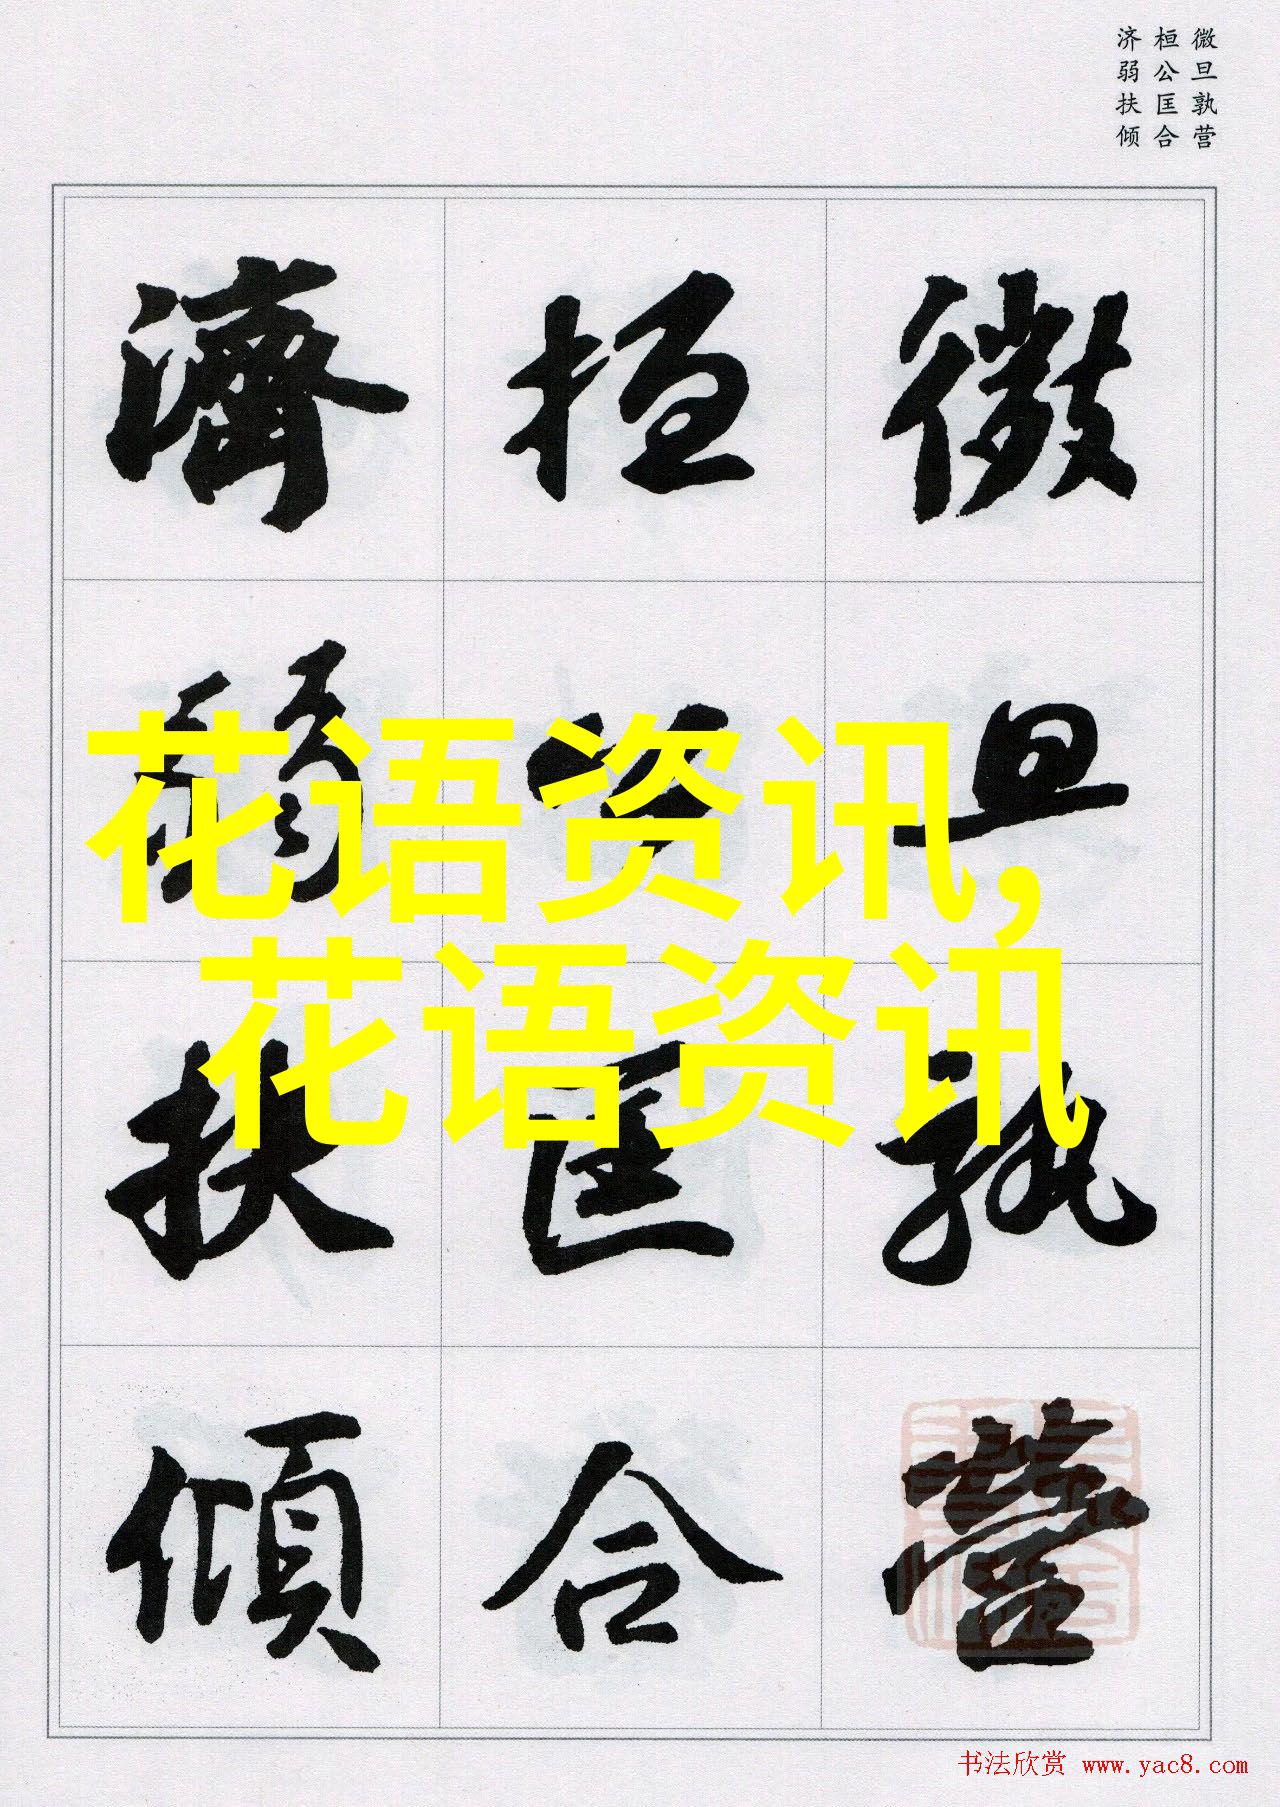 微旦孰营
桓公匡合
济弱扶倾
微旦孰營
桓公匡合
濟弱扶傾
花语资讯,
花语资讯
书法欣赏 www.yac8.com